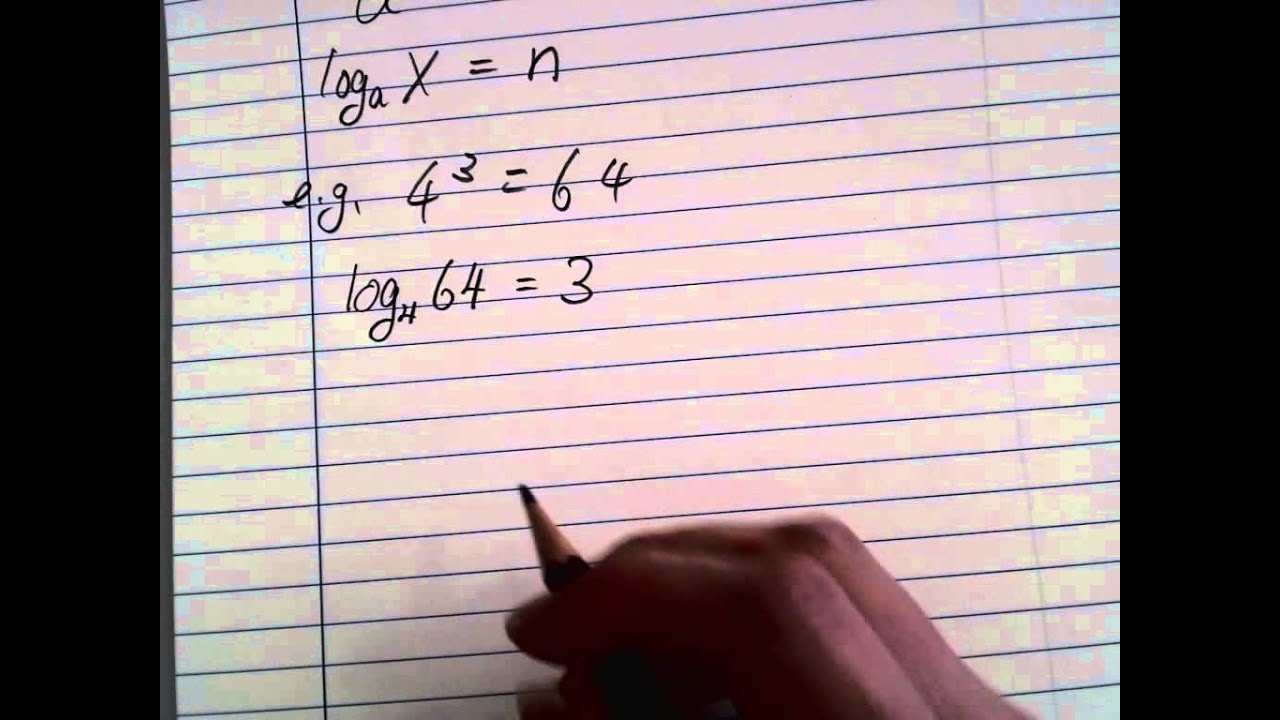 logₐ X = n
e.g. 4³ = 64
log₄ 64 = 3